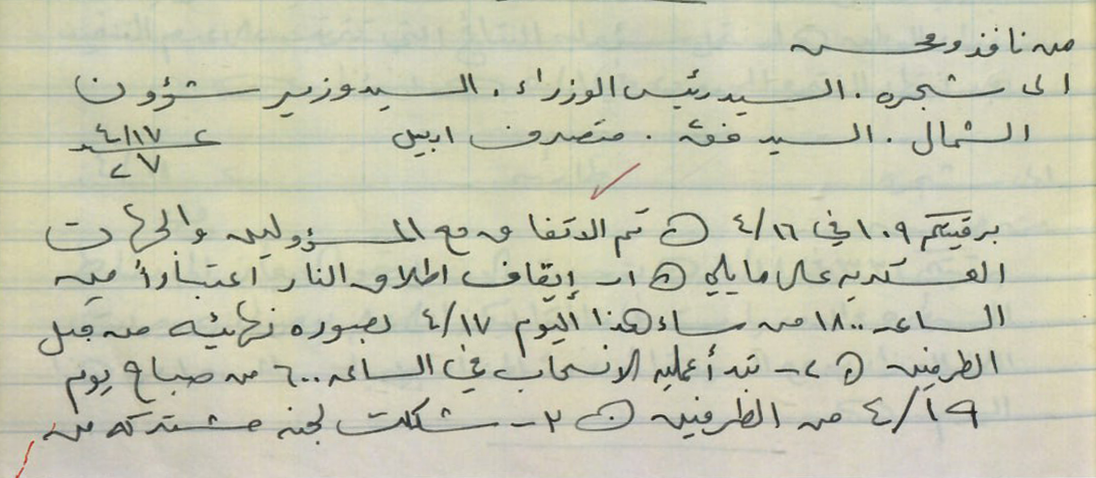 من نافذ ومحسن
الى شجره . السيد رئيس الوزراء . السيد وزير شؤون
الشمال . السيد . متصرف اربيل ٤/١٧
برقيتكم ١٠٩ في ٤/١٦ تم الاتفاق مع المسؤولين والجهات
العسكريه على مايلي ١- إيقاف اطلاق النار اعتباراً من
الساعه ١٨٠٠ من مساء هذا اليوم ٤/١٧ بصوره نهائيه من قبل
الطرفين ٢- تبدأ عمليه الانسحاب في الساعه ٦٠٠ من صباح يوم
٤/١٩ من الطرفين ٣- شكلت لجنه مشتركه من